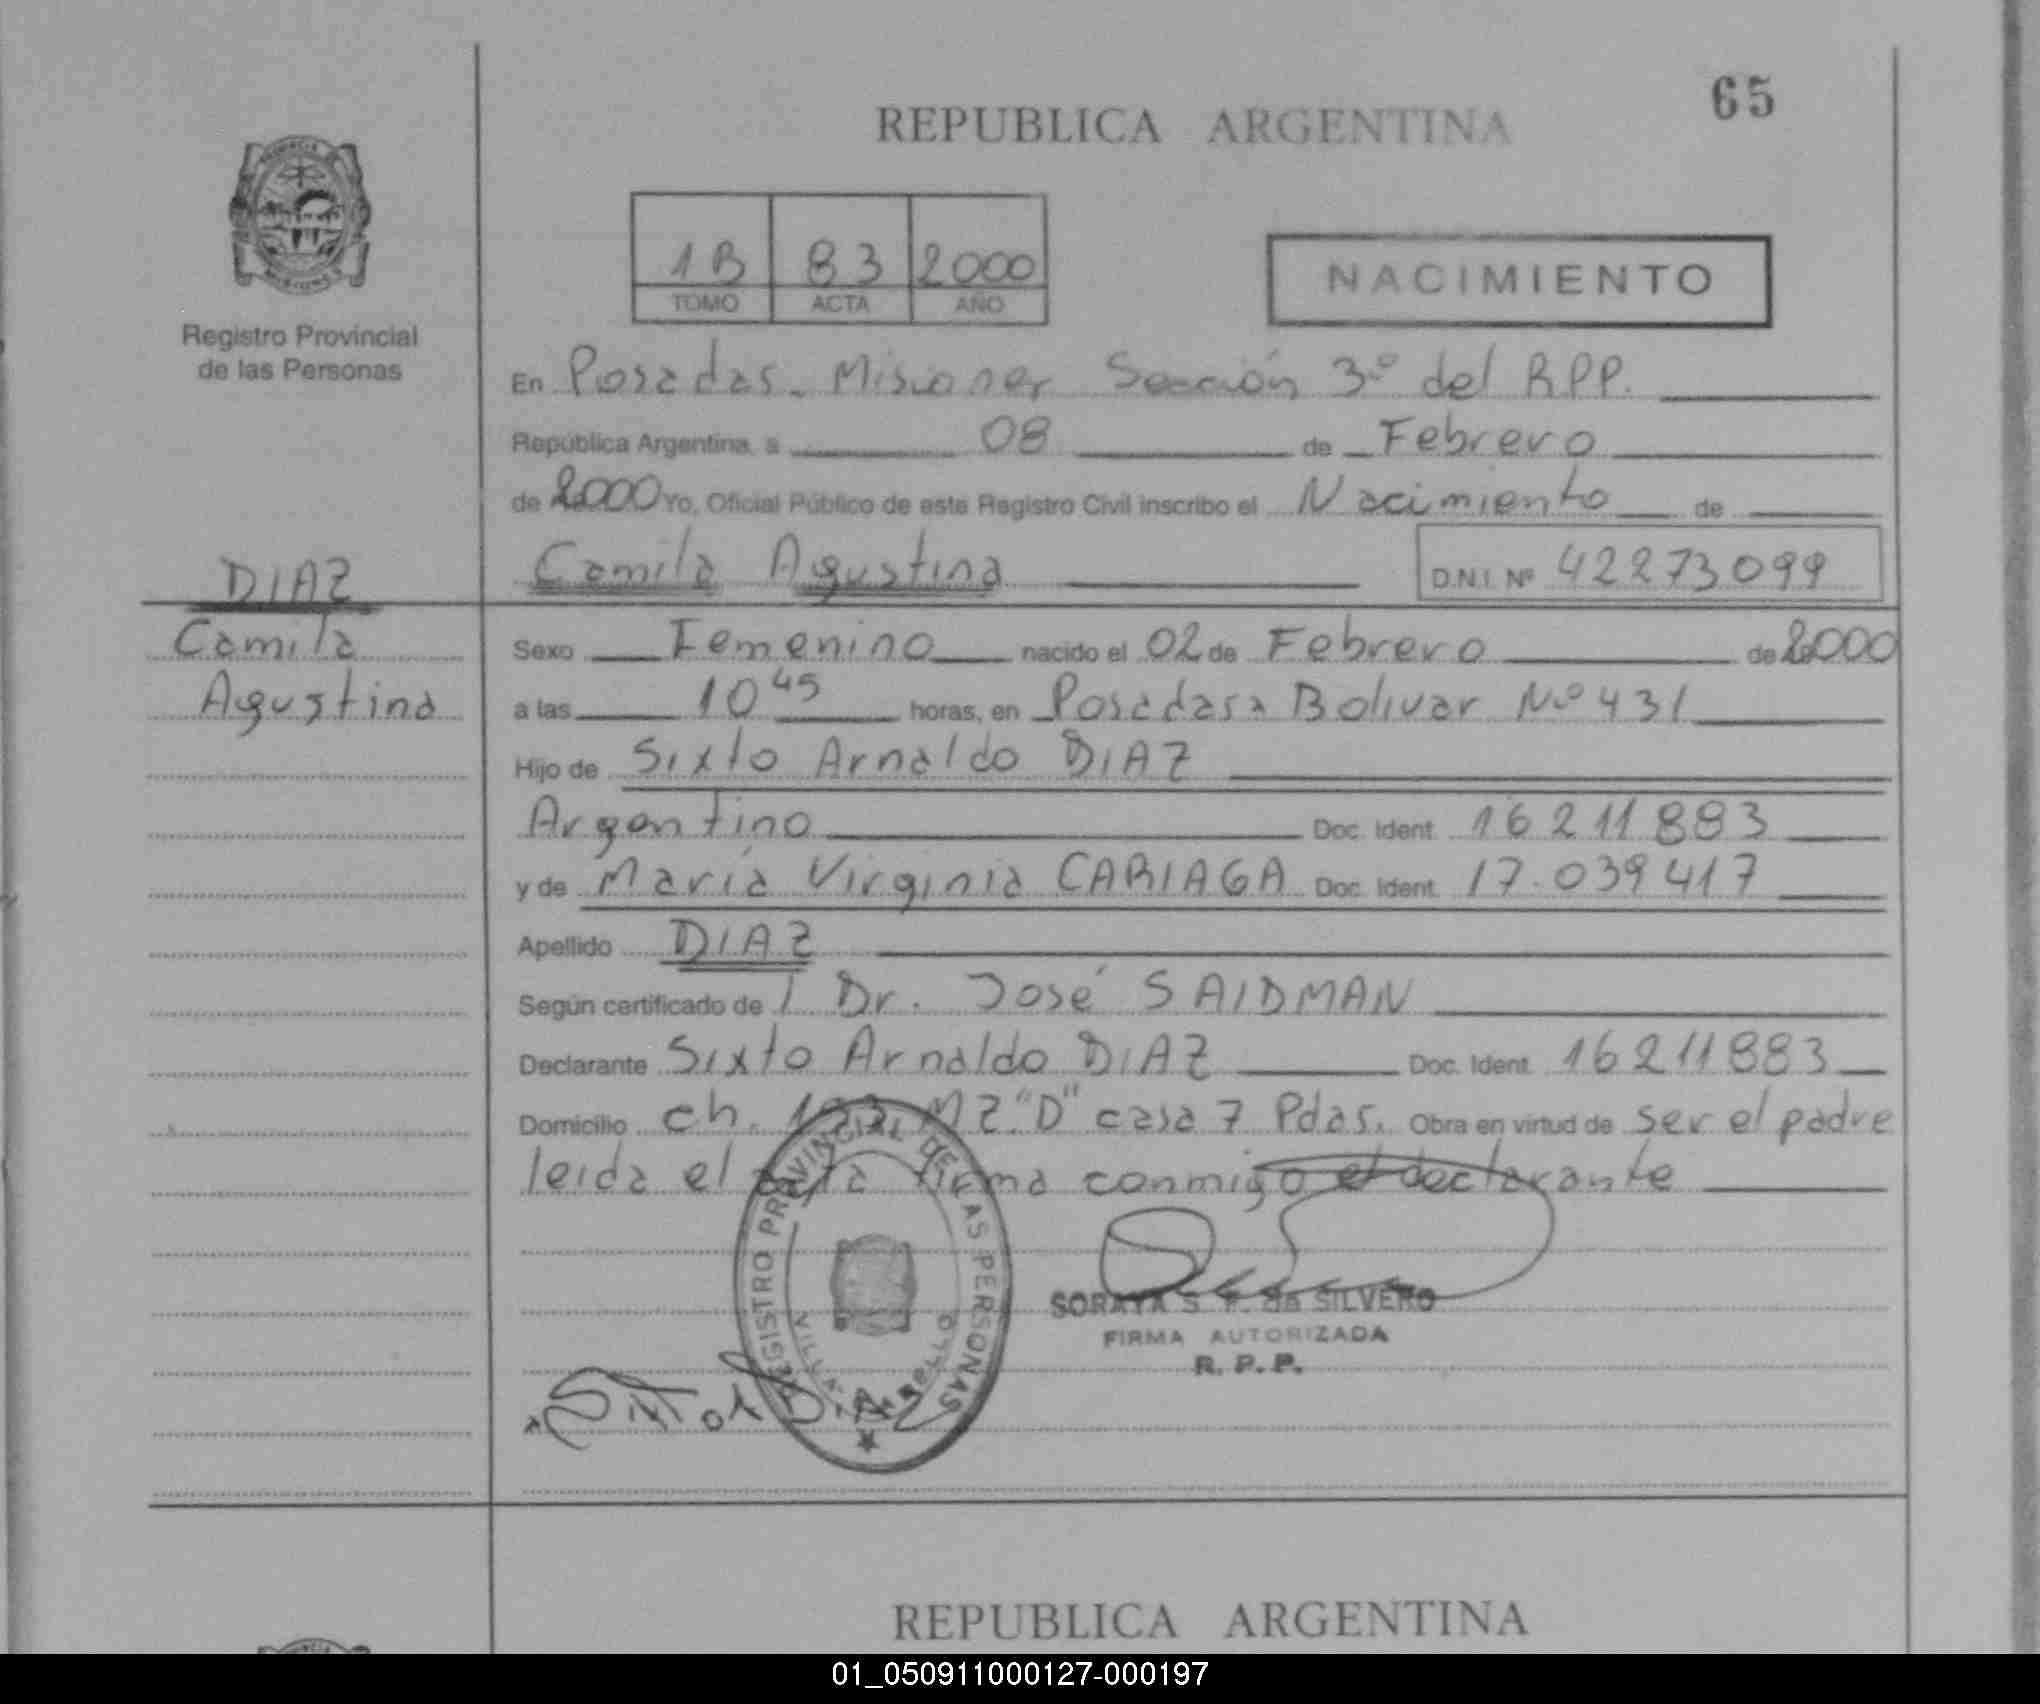 65
REPUBLICA ARGENTINA
1B 83 2000
TOMO ACTA AÑO
NACIMIENTO
Registro Provincial
de las Personas
En Posadas - Misiones Sección 3º del RPP.
República Argentina, a 08 de Febrero
de 2000 Yo, Oficial Público de este Registro Civil inscribo el Nacimiento de
DIAZ Camila Agustina D.N.I. Nº 42273099
Camila Sexo Femenino nacido el 02 de Febrero de 2000
Agustina a las 10 45 horas, en Posadas Bolivar Nº 431
Hijo de Sixto Arnaldo DIAZ
Argentino Doc. Ident. 16211883
y de María Virginia CARIAGA Doc. Ident. 17.039417
Apellido DIAZ
Según certificado de l Dr. José SAIDMAN
Declarante Sixto Arnaldo DIAZ Doc. Ident. 16211883
Domicilio ch. MZ "D" casa 7 Pdas. Obra en virtud de ser el padre
leida el acta firma conmigo el declarante
REGISTRO PROVINCIAL DE LAS PERSONAS
VILLA
SORAYA S. de SILVERO
FIRMA AUTORIZADA
R. P. P.
REPUBLICA ARGENTINA
01_050911000127-000197